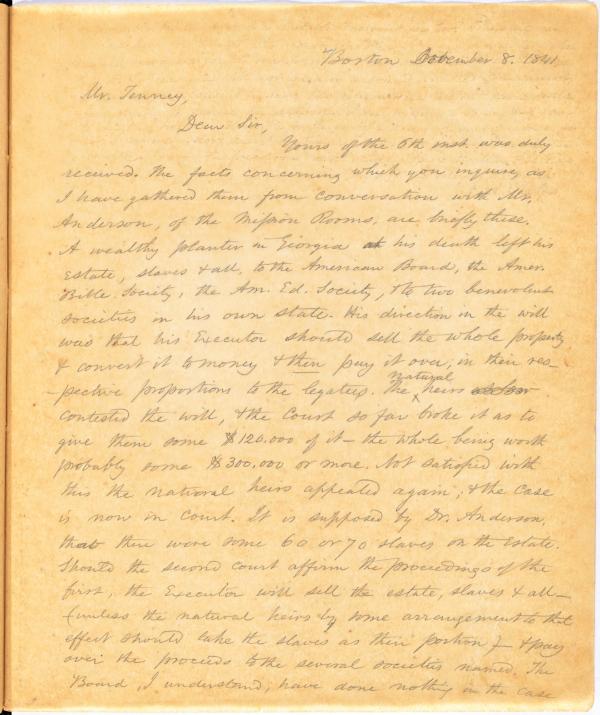 Boston November 8. 1841
Mr. Tenney,
Dear Sir,
Yours of the 6th inst. was duly
received. The facts concerning which you inquire, as
I have gathered them from conversation with Mr.
Anderson, of the Mission Rooms, are briefly these.
A wealthy planter in Georgia at his death left his
Estate, slaves & all, to the American Board, the Amer.
Bible Society, the Am. Ed. Society, & to two benevolent
societies in his own state. His direction in the will
was that his Executor should sell the whole property
& convert it to money & then pay it over, in their res-
-pective proportions to the legatees. The natural heirs
contested the will, & the Court so far broke it as to
give them some $120.000 of it — the whole being worth
probably some $300.000 or more. Not satisfied with
this the national heirs appealed again, & the case
is now in court. It is supposed by Dr. Anderson,
that there were some 60 or 70 slaves on the Estate.
Should the second court affirm the proceedings of the
first, the Executor will sell the estate, slaves & all —
(unless the natural heirs by some arrangement to that
effect should take the slaves as their portion) — & pay
over the proceeds to the several societies named. The
Board, I understand, have done nothing in the case